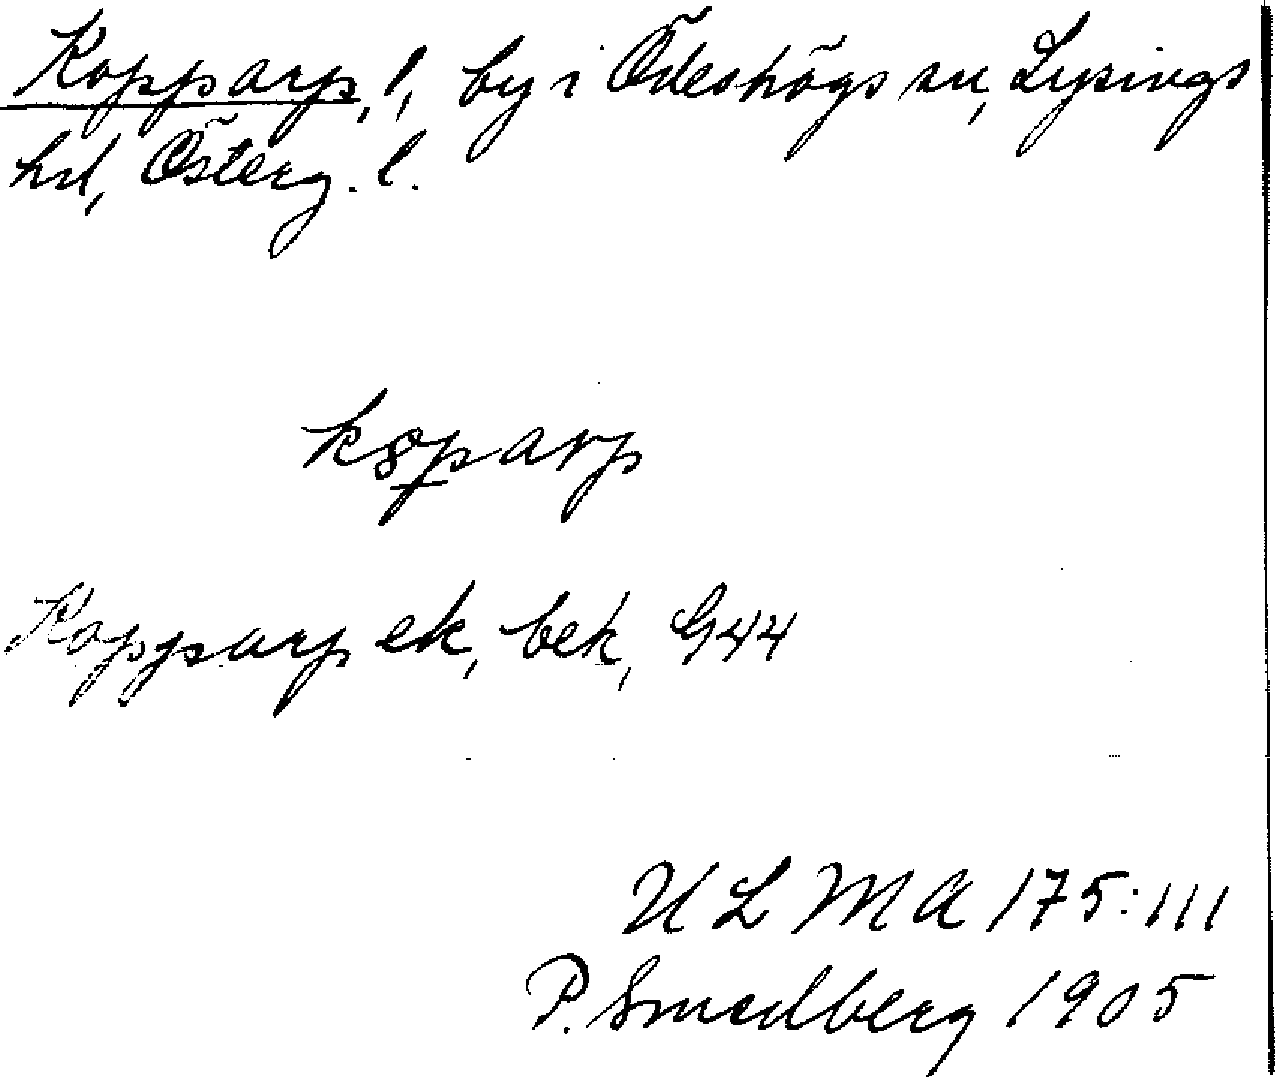 Kopparp, l, by i Ödeshögs sn, Lysings
hd, Österg. l.
k8parp
Kopparp ek, bek, G44
ULMA 175:111
P. Smedberg 1905